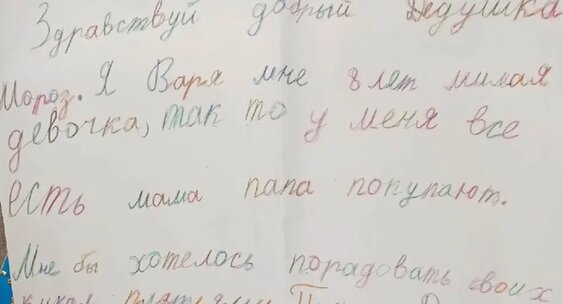 Здравствуй добрый Дедушка
Мороз. Я Варя мне 8 лет милая
девочка, так то у меня все
есть мама папа покупают.
Мне бы хотелось порадовать своих